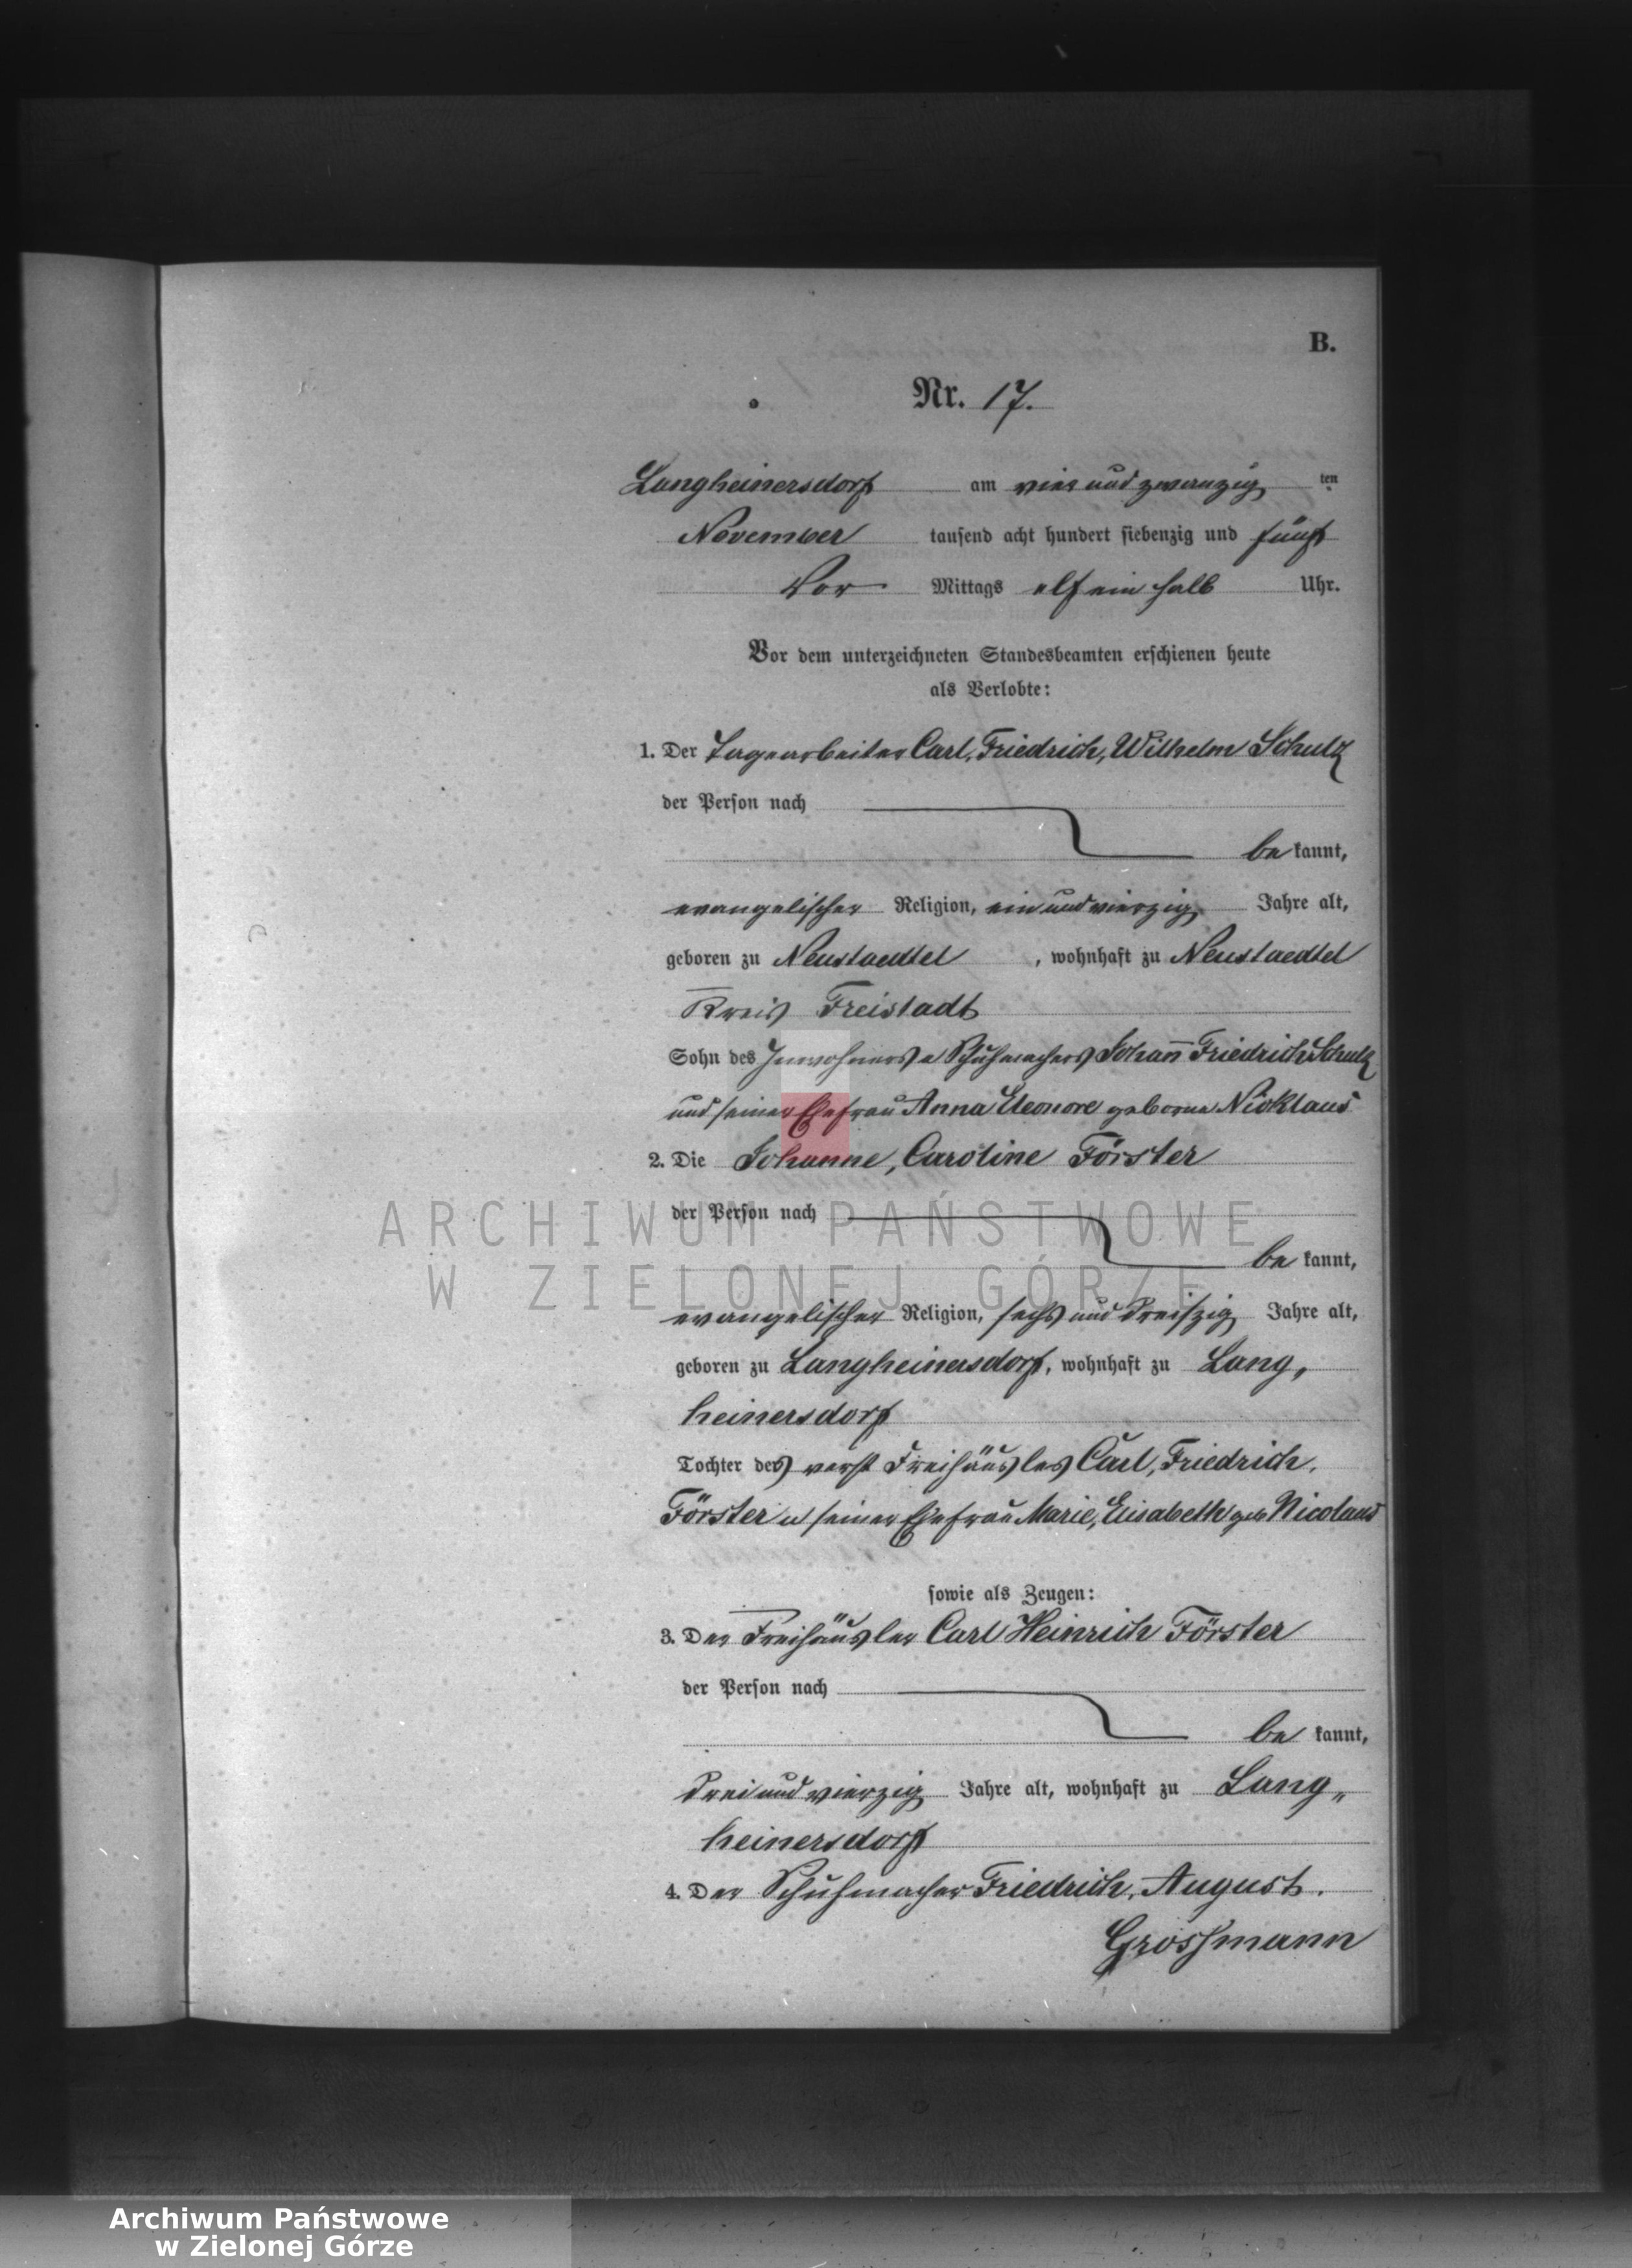 B.
Nr. 17.
Langheinersdorf am vier und zwanzig ten
November tausend acht hundert siebenzig und fünf
Vor Mittags elf ein halb Uhr.
Vor dem unterzeichneten Standesbeamten erschienen heute
als Verlobte:
1. Der Tagearbeiter Carl, Friedrich, Wilhelm Schulz
der Person nach
be kannt,
evangelischer Religion, ein und vierzig Jahre alt,
geboren zu Neustaedtel, wohnhaft zu Neustaedtel
Kreis Freistadt
Sohn des Inwohners u Schuhmachers Johañ Friedrich Schulz
und seiner Ehefrau Anna Eleonore geborne Nicklaus
2. Die Johanne, Caroline Förster
der Person nach
be kannt,
evangelischer Religion, sechs und dreißzig Jahre alt,
geboren zu Langheinersdorf, wohnhaft zu Lang„
heinersdorf
Tochter des verst Freihäuslers Carl, Friedrich,
Förster u seiner Ehefrau Marie, Elisabeth geb Nicolaus
sowie als Zeugen:
3. Der Freihäusler Carl Heinrich Förster
der Person nach
be kannt,
drei und vierzig Jahre alt, wohnhaft zu Lang„
heinersdorf
4. Der Schuhmacher Friedrich, August.
Grossmann
ARCHIWUM PAŃSTWOWE
W ZIELONEJ GÓRZE
Archiwum Państwowe
w Zielonej Górze